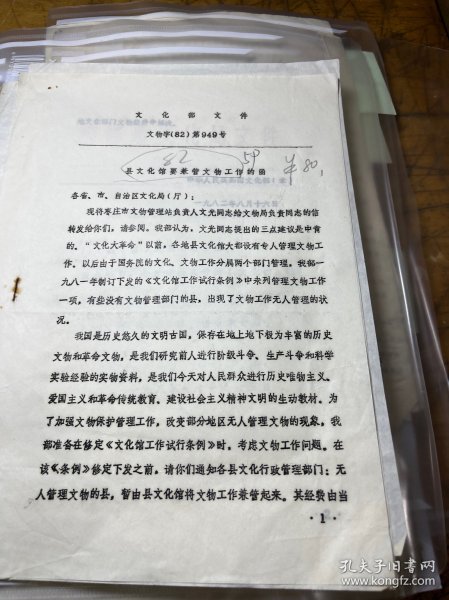 文化部文件
文物字(82)第949号
82 54 ¥80,
县文化馆要兼管文物工作的函
各省、市、自治区文化局(厅):
一九八二年八月十六日
现将枣庄市文物管理站负责人文光同志给文物局负责同志的信
转发给你们,请参阅。我部认为,文光同志提出的三点建议是中肯
的。“文化大革命”以前,各地县文化馆大都设有专人管理文物工
作。以后由于国务院的文化、文物工作分属两个部门管理,我部一
九八一年制订下发的《文化馆工作试行条例》中未列管理文物工作
一项,有些没有文物管理部门的县,出现了文物工作无人管理的状
况。
我国是历史悠久的文明古国,保存在地上地下极为丰富的历史
文物和革命文物,是我们研究前人进行阶级斗争、生产斗争和科学
实验经验的实物资料,是我们今天对人民群众进行历史唯物主义、
爱国主义和革命传统教育。建设社会主义精神文明的生动教材。为
了加强文物保护管理工作,改变部分地区无人管理文物的现象,我
部准备在修定《文化馆工作试行条例》时,考虑文物工作问题。在
该《条例》修定下发之前,请你们通知各县文化行政管理部门:无
人管理文物的县,暂由县文化馆将文物工作兼管起来。其经费由当
·1·
孔夫子旧书网
www.kongfz.com